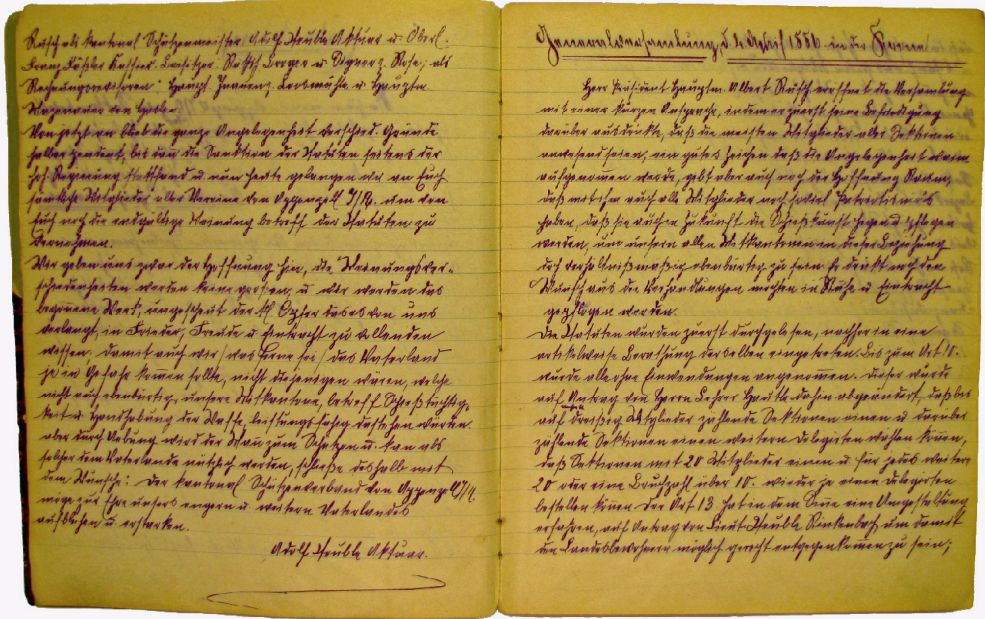 Rusch als kantonal Schützenmeister, Adolf Steuble Aktuar u. Oberl.
Franz Fäßler Kassier. Beisitzer: Rusch Berger u. Signer z. Rose; als
Rechnungsrevisoren: Hauptm. Lochmühle u. Hauptm.
von
Von jetzt an blieb die ganze Angelegenheit verschied. Gründe
halber pendent, bis dann die Sanktion der Statuten seitens der
hoh. Regierung stattfand u. nun heute gelangen wir an Euch
sämtliche Mitglieder aller Vereine von Appenzell I/Rh. um von
Euch noch die endgültige Meinung betreff der Statuten zu
vernehmen.
Wir geben uns zwar der Hoffnung hin, die Meinungsver-
schiedenheiten werden keine großen u. wir werden das
begonnene Werk, ungescheut der Opfer das es von uns
verlangt, in Frieden, Freude u. Eintracht zu vollenden
wissen. Damit auch wir / das ferne sei / das Vaterland
je in Gefahr kommen sollte, nicht diejenigen wären, welche
nicht auch ebenbürtig, unsern Mitkantone, betreff Schießtüchtig-
keit u. Handhabung der Waffe, leistungsfähig dastehen würden.
aber durch Uebung wird der Mann zum Schützen u. kan als
solcher dem Vaterlande nützlich werden, schließe deshalb mit
dem Wunsch: Der kantonal Schützenverband von Appenzell I/Rh.
möge zur Ehre unsers engern u. weitern Vaterlandes
aufblühen u. erstarken.
Adolf Steuble Aktuar.
Generalversammlung, d. 2. April 1886 in der Krone
Herr Präsident Hauptm. Albert Rusch eröffnet die Versammlung
mit einer kurzen Ansprache, indem er zuerst seine Befriedigung
darüber ausdrückte, daß die meisten Mitglieder aller Sektionen
anwesend seien, ein gutes Zeichen daß die Angelegenheit warm
aufgenommen werde, gibt aber auch noch der Hoffnung Raum,
daß mithin auch alle Mitglieder noch soviel Patriotismus
haben, daß sie auch in Zukunft die Schießkunst hegen u. pflegen
werden, um unsern alten Mitkantonen in dieser Beziehung
doch verhältnißmäßig ebenbürtig zu sein. Er drückt noch den
Wunsch aus die Verhandlungen möchten in Ruhe u. Eintracht
gepflogen werden.
Die Statuten wurden zuerst durchgelesen, nachher in eine
artikelweise Berathung derselben eingetreten. Bis zum Art 10.
wurde alle ohne Einwendungen angenommen. Dieser wurde
auf Antrag von Herrn Lehrer Haute dahin abgeändert, daß bis
auf dreißig Mitglieder zählende Sektionen einen u. darüber
zählende Sektionen einen weitern Delegirten wählen können,
daß Sektionen mit 20 Mitglieder einen u. für jedes weitere
20 oder eine Bruchzahl über 10. wieder je einen Delegirten
bestellen können. Der Art 13 hat in dem Sinne eine Umgestaltung
erfahren, auf Antrag von Lieut. Steuble Rinkenbach, um damit
den Landbewohnern möglich gerecht entgegenkommen zu sein;